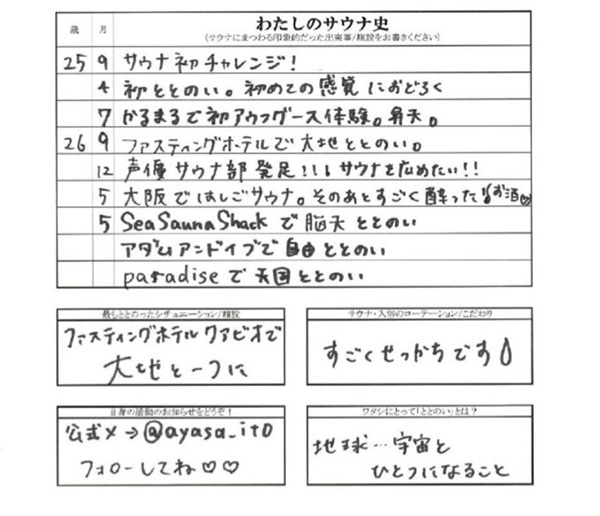 歳 月 わたしのサウナ史
(サウナにまつわる印象的だった出来事/施設をお書きください)
25 9 サウナ初チャレンジ!
4 初ととのい。初めての感覚におどろく
7 かるまるで初アウフグース体験。昇天。
26 9 ファスティングホテルで大地ととのい。
12 声優サウナ部発足!!! サウナを広めたい!!
5 大阪ではしごサウナ。そのあとすごく酔った お酒
5 SeaSaunaShackで脳天ととのい
アダムアンドイブで自由ととのい
paradiseで天国ととのい
最もととのったシチュエーション/施設
ファスティングホテル クアビオで
大地と一つに
サウナ・入浴のローテーション/こだわり
すごくせっかちです
自身の活動のお知らせをどうぞ!
公式〆→@ayasa_ito
フォローしてね♡♡
ワタシにとって「ととのい」とは?
地球…宇宙と
ひとつになること